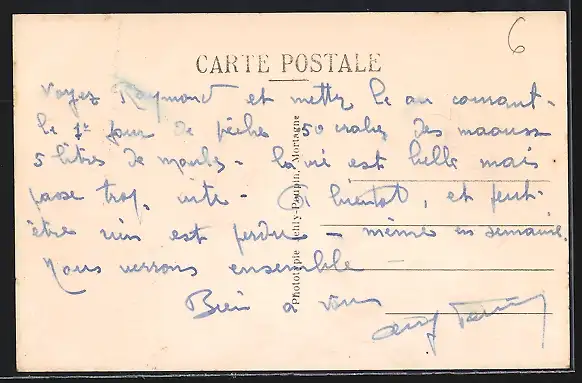 6
CARTE POSTALE
Voyez Raymond et mettez le au courant -
le 1er jour de pêche 50 crabes des maouss
5 litres de moules - la vie est belle mais
passe trop vite - A bientôt, et peut-
être rien est perdu - même en semaine.
Nous verrons ensemble
Bien à vous
Phototypie Mortagne